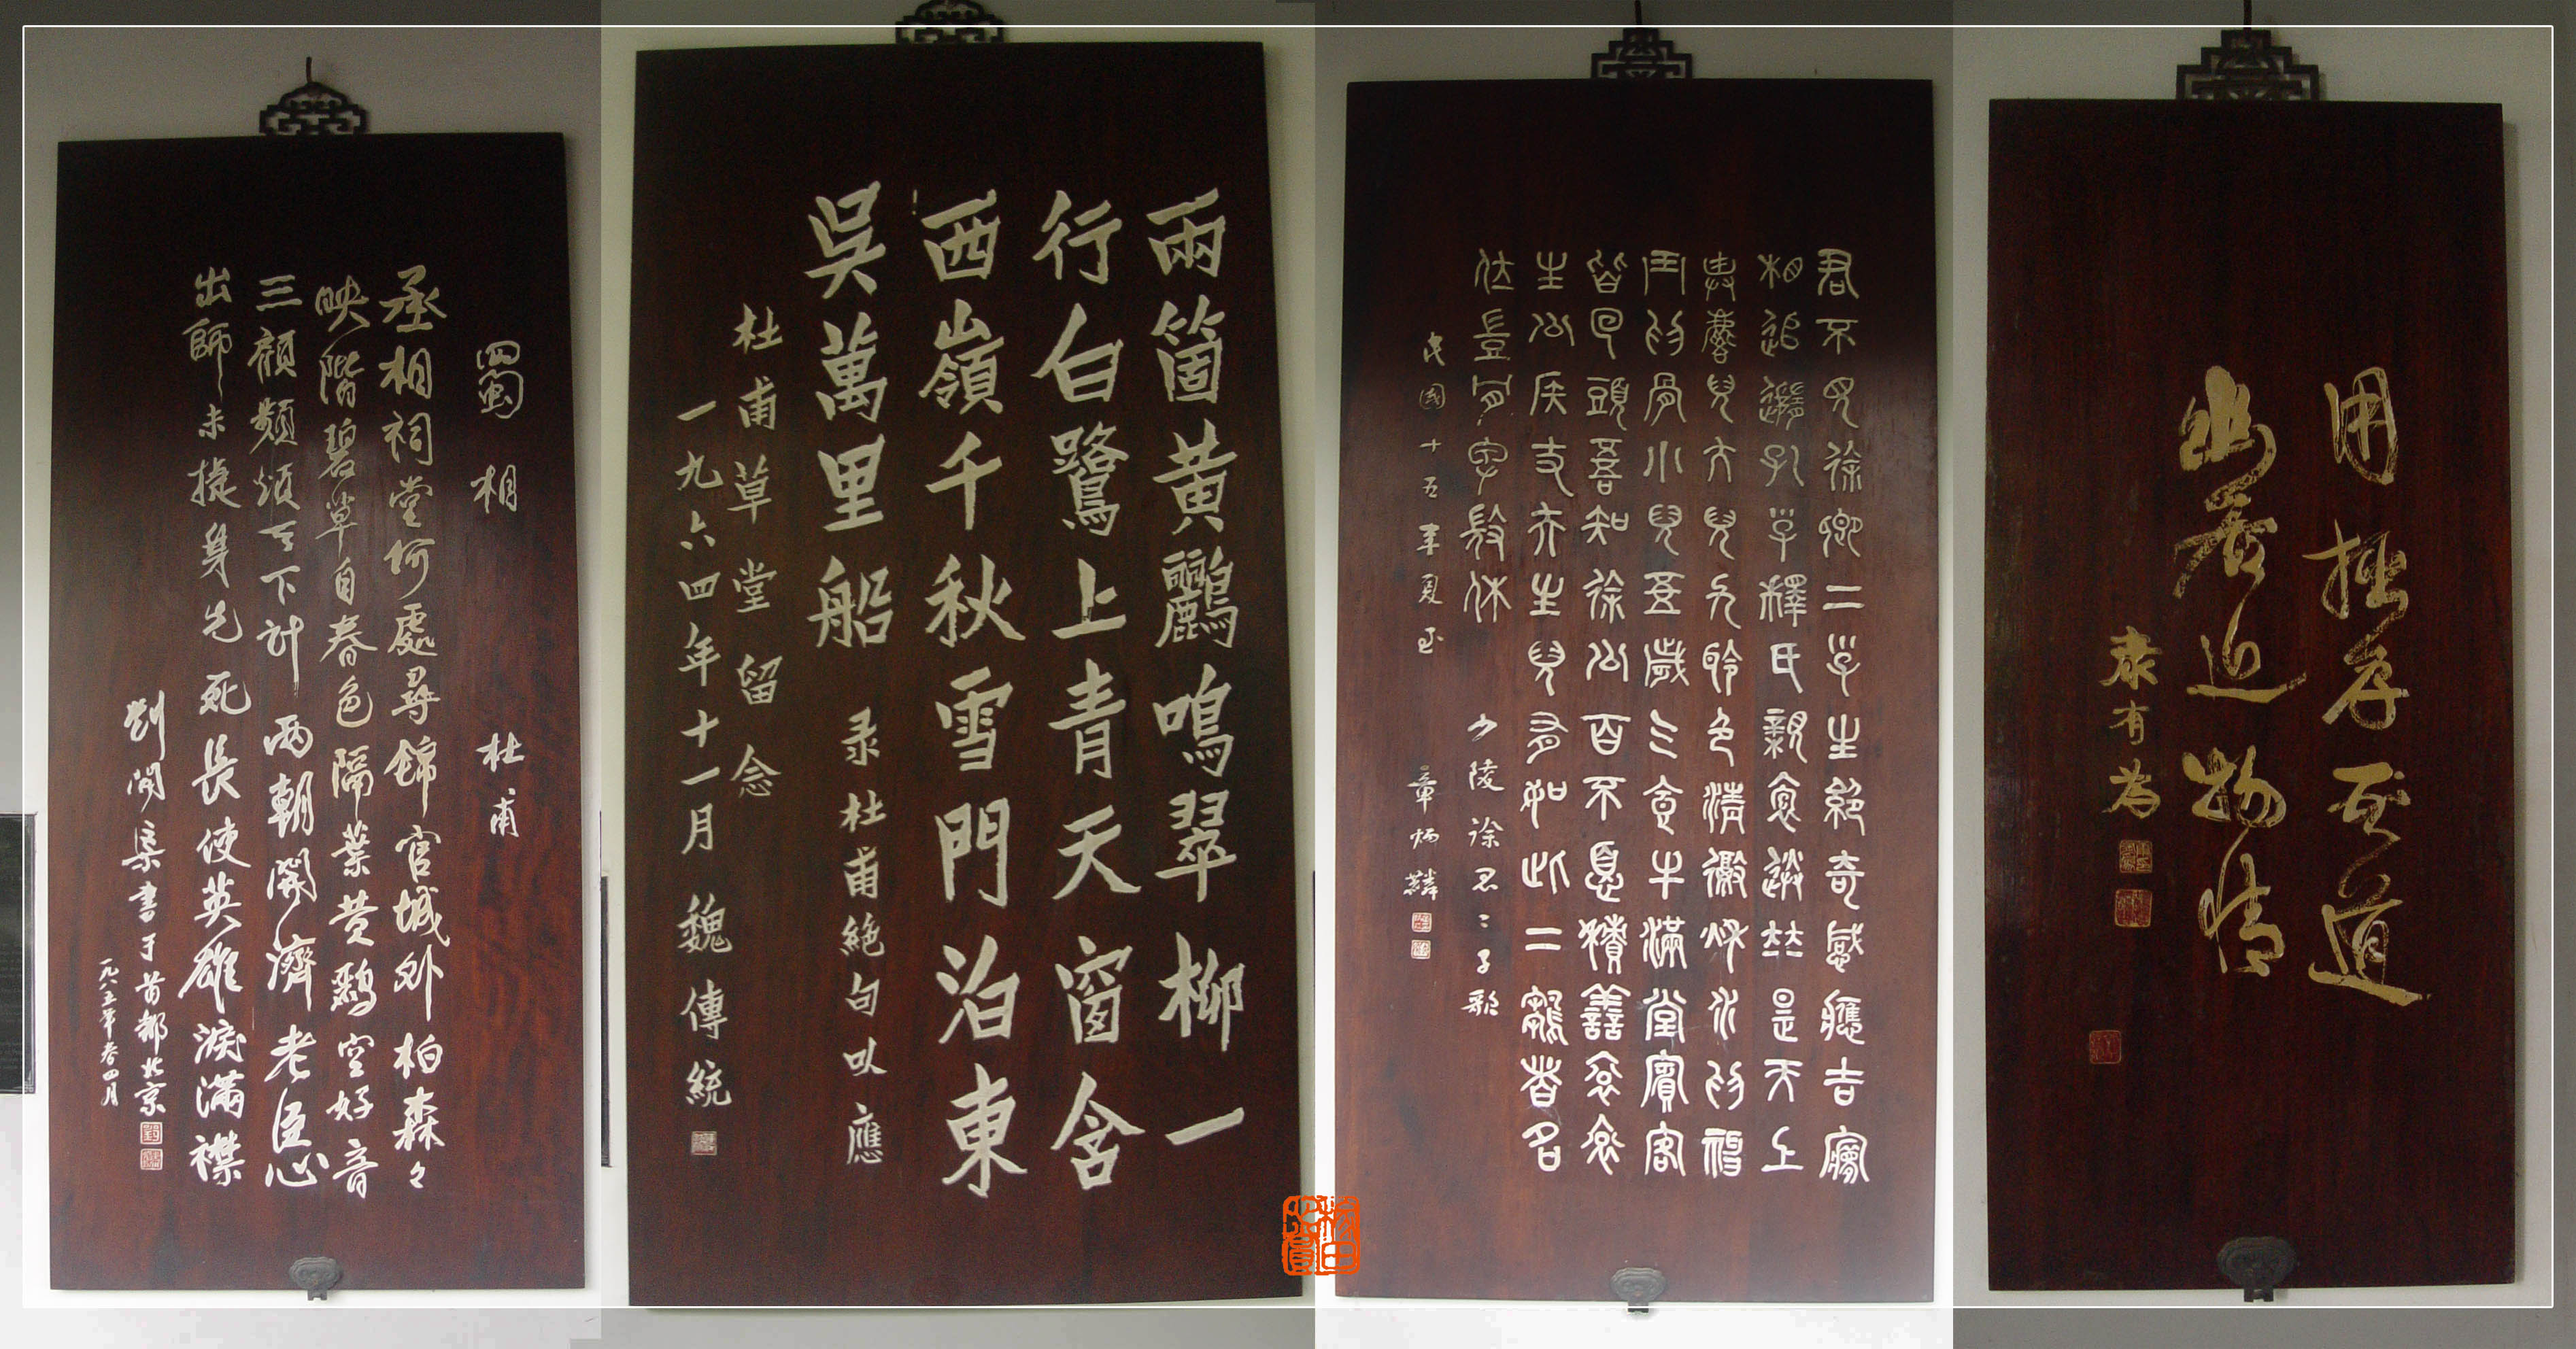 用拙存吾道
幽居近物情
康有為
君不見徐卿二子生絕奇感應吉夢
相追隨孔子釋氏親抱送竝是天上
麒麟兒大兒九齡色清澈秋水為神
玉為骨小兒五歲气食牛滿堂賓客
皆回頭吾知徐公百不憂積善袞袞
生公侯丈夫生兒有如此二雛者名
位豈肯卑微休 少陵徐君二子歌
民國十五年夏至 章炳麟
兩箇黃鸝鳴翠柳一
行白鷺上青天窗含
西嶺千秋雪門泊東
吳萬里船 录杜甫絕句以應
杜甫草堂留念
一九六四年十一月魏傳統
蜀相 杜甫
丞相祠堂何處尋錦官城外柏森々
映階碧草自春色隔葉黃鸝空好音
三顧頻煩天下計兩朝開濟老臣心
出師未捷身先死長使英雄淚滿襟
劉開渠書于首都北京
一九八五年春四月